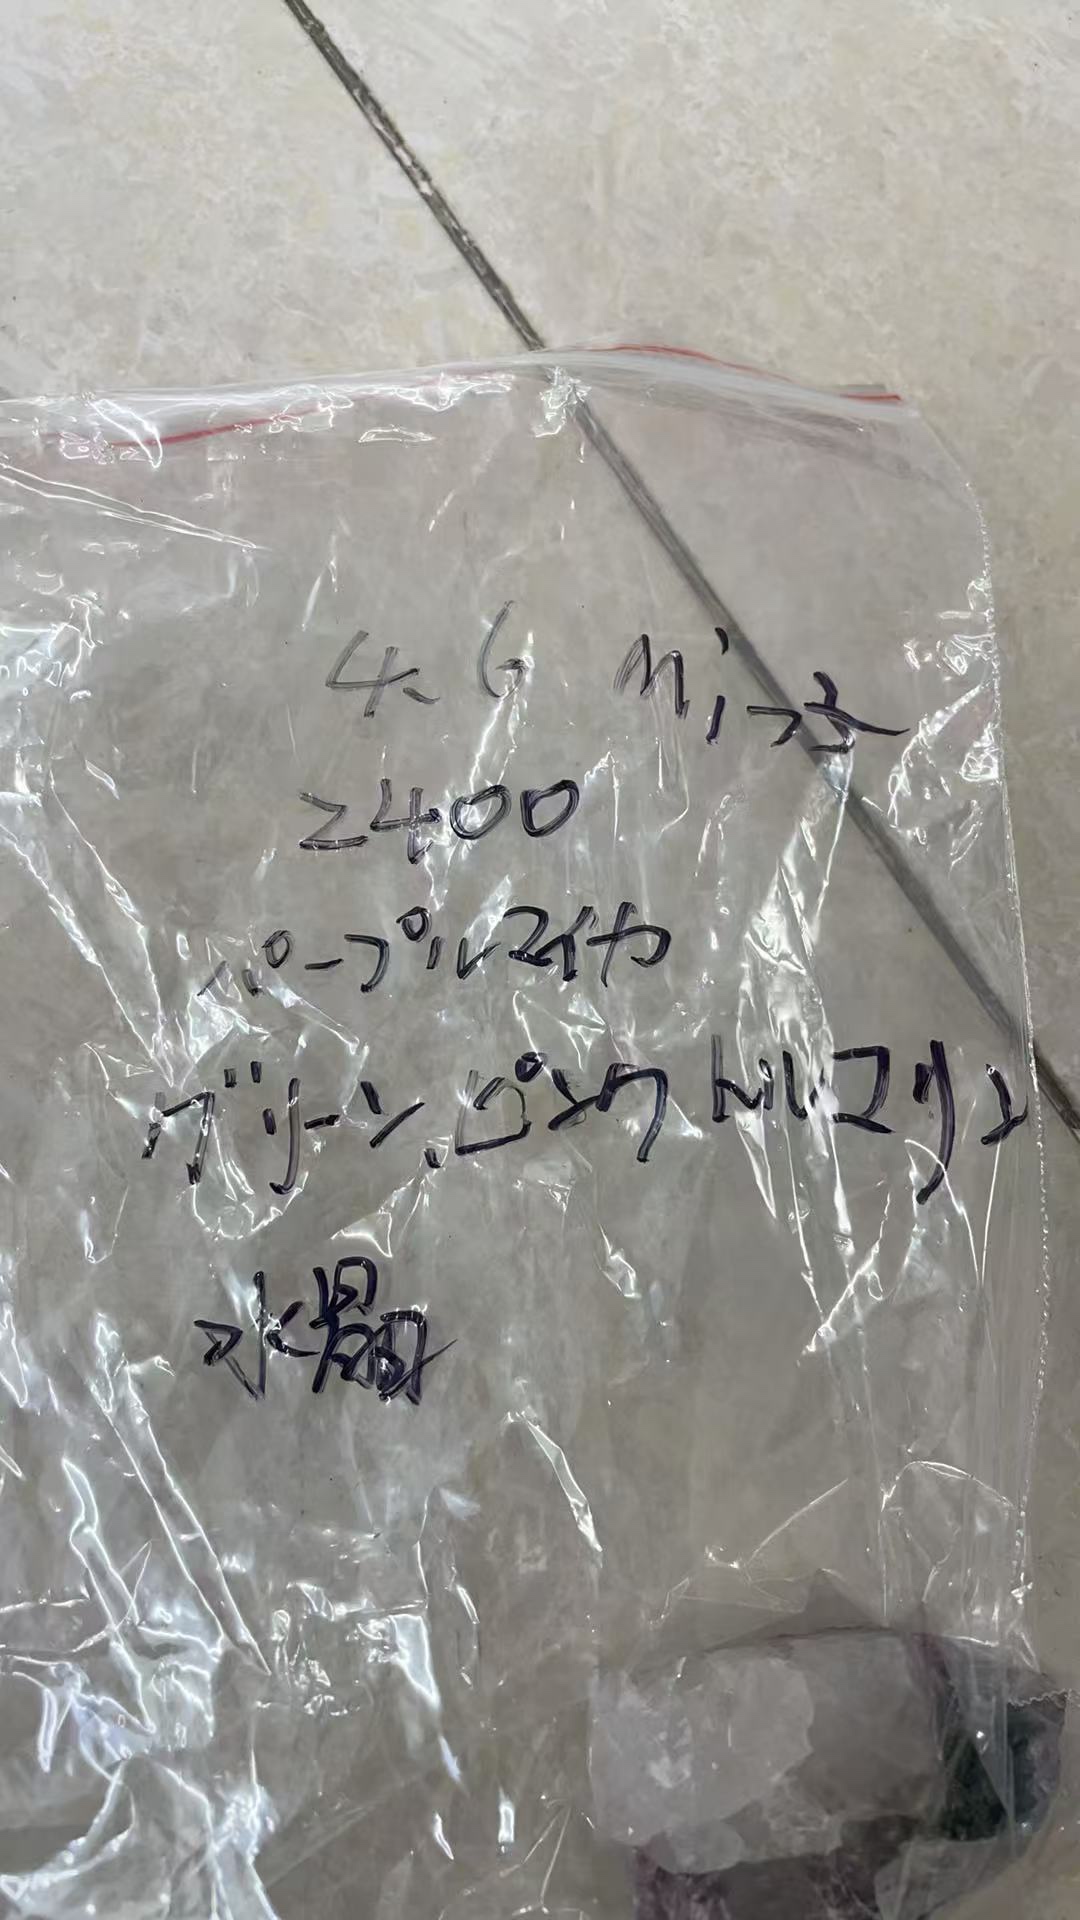 4、6 Miつえ
2400
パープルマイカ
グリーン、ピンクトルマリン
水晶